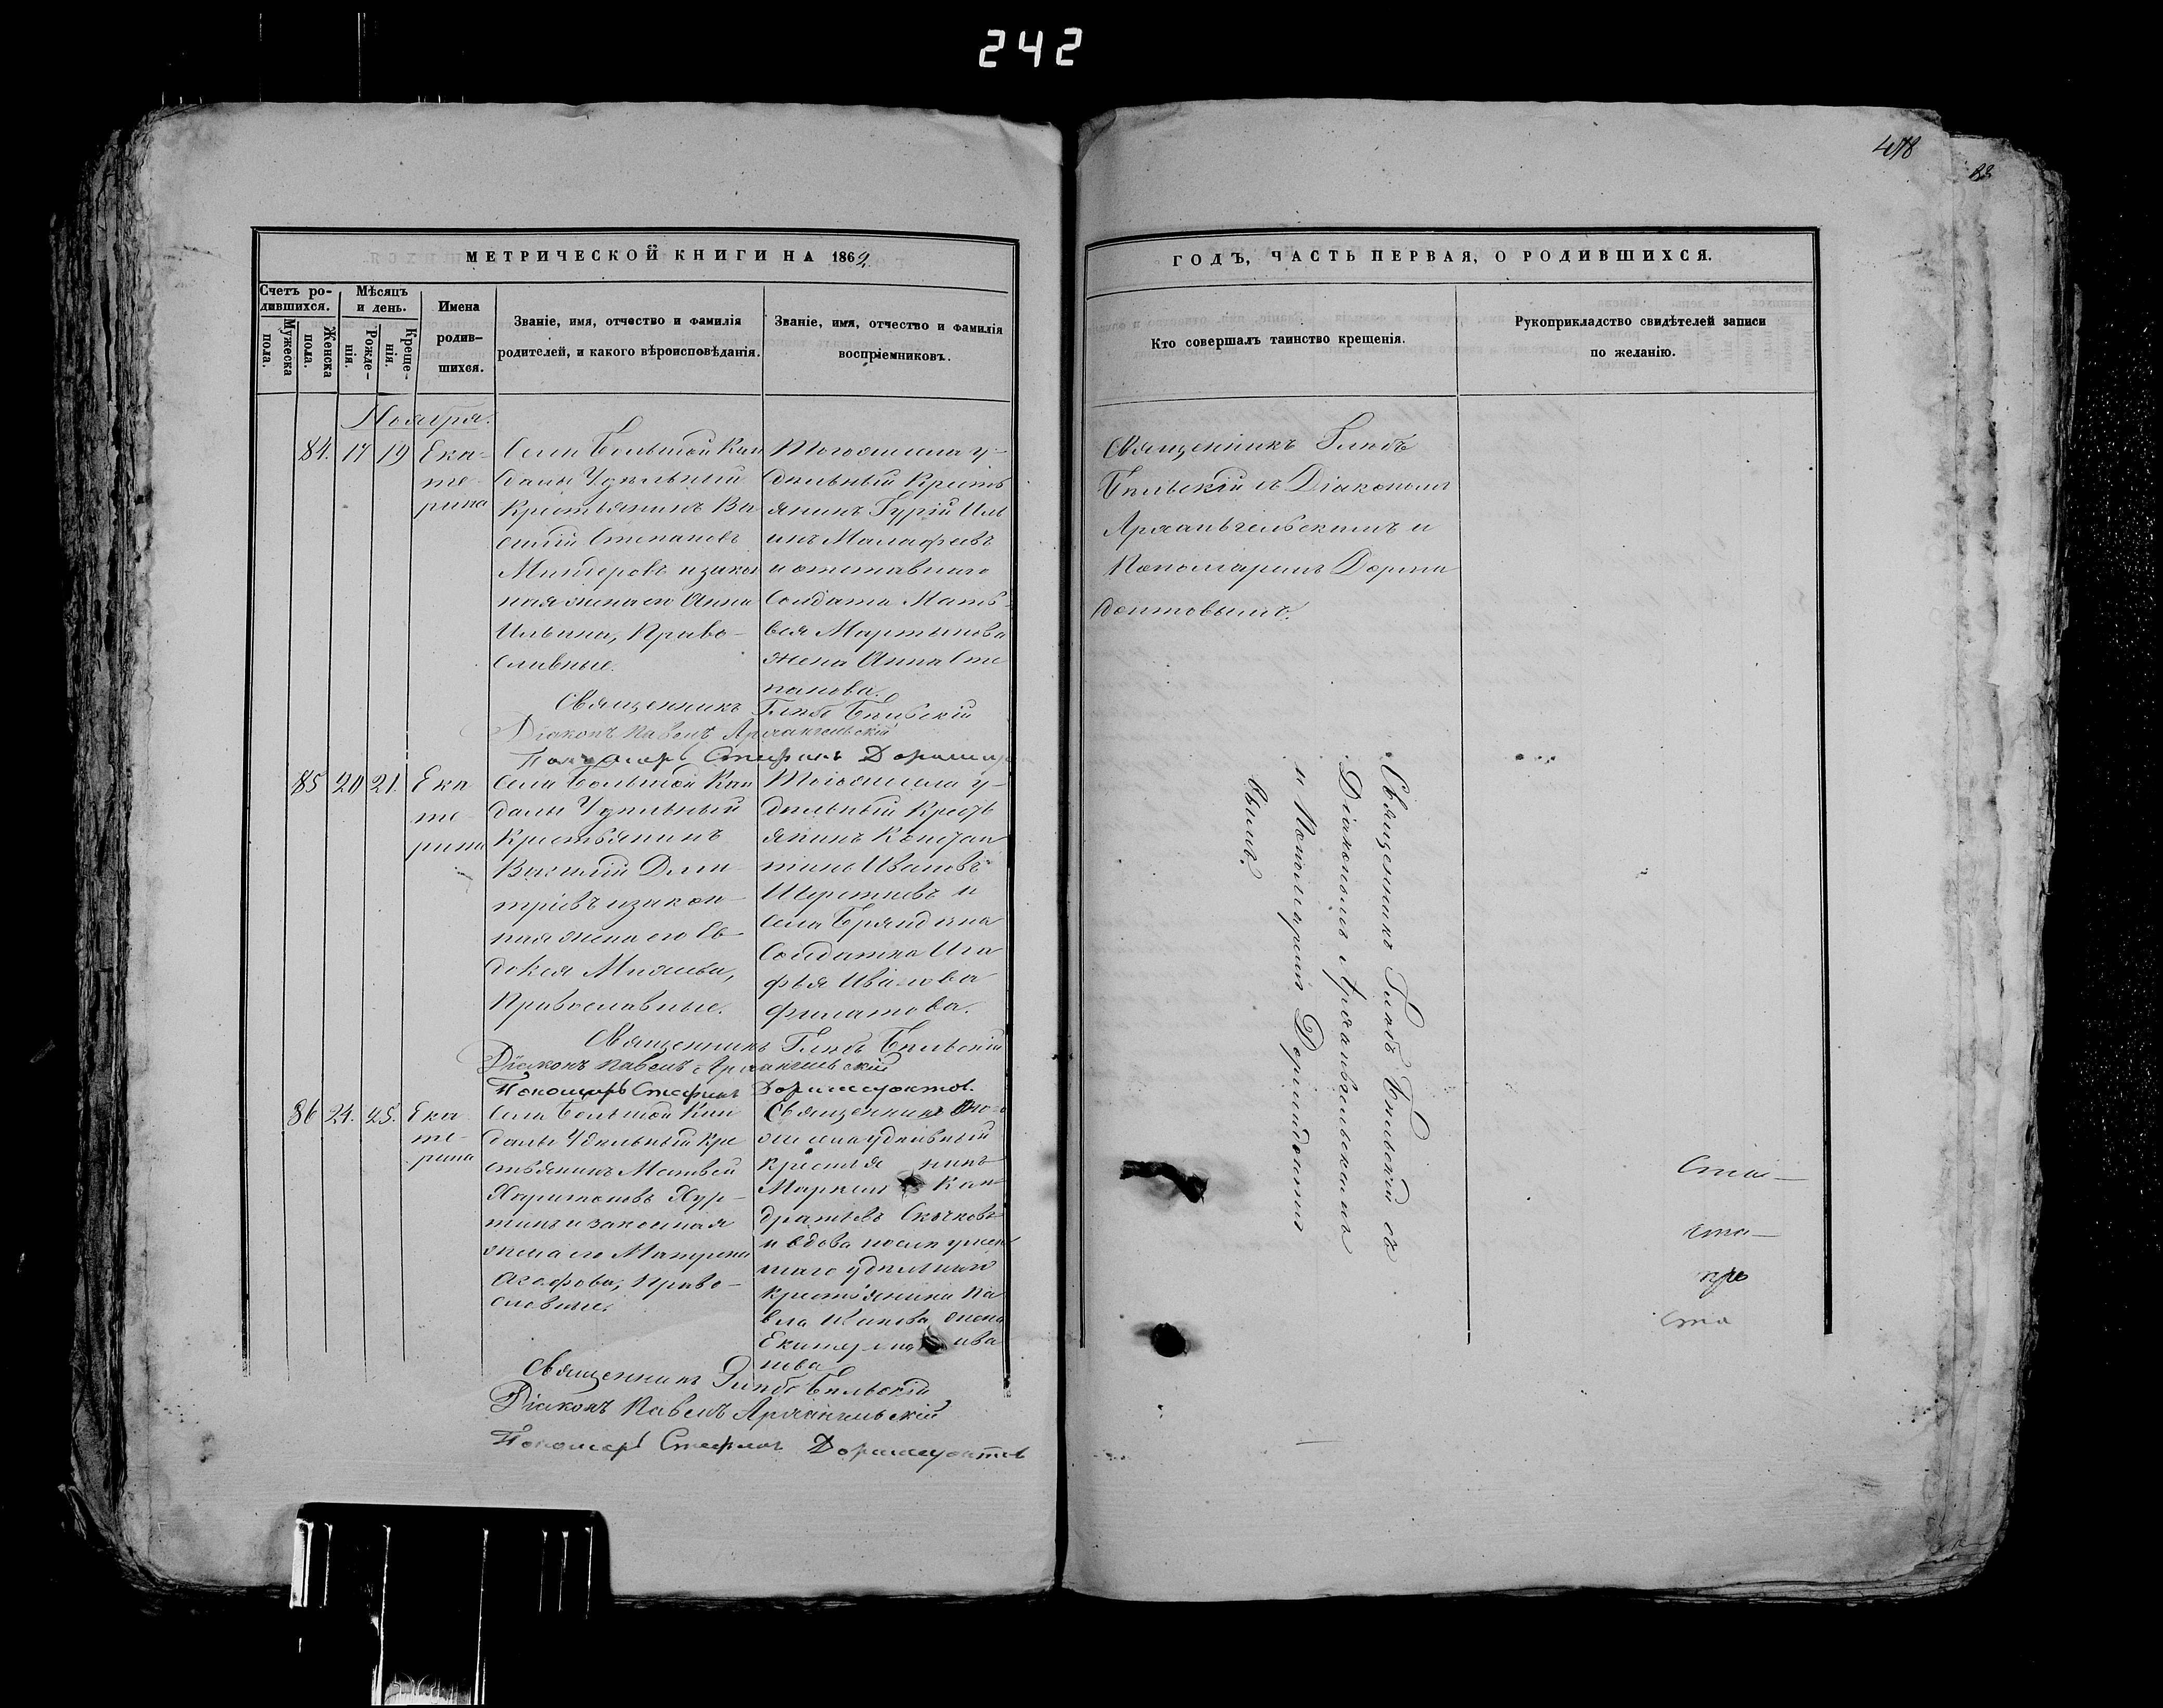 242
478
МЕТРИЧЕСКОЙ КНИГИ НА 1862
Счетъ ро-
дившихся.
Мужеска
пола.
Женска
пола.
Мѣсяцъ
и день.
Рожде-
нія.
Креще-
нія.
Имена
родив-
шихся.
Званіе, имя, отчество и фамилія
родителей, и какого вѣроисповѣданія.
Званіе, имя, отчество и фамилія
воспріемниковъ.
Ноября.
84. 17 19
Ека-
те-
рина
Села Большой Кан
далы Удѣльный
Крестьянинъ Ва
силій Степановъ
и закон
ная жена его Анна
Ильина, Право-
славные.
Тогожъ села у-
дѣльный Кресть
янинъ Гурій Иль
инъ Малафеевъ
и отставнаго
Солдата Матѳ-
вея Мартынова
жена Анна Сте
панова.
Священникъ Глѣбъ Бѣльскій
Діаконъ Павелъ Архангельскій
Пономарь Стефанъ
85 20 21.
Ека
те-
рина
Села Большой Кан
далы Удѣльный
Крестьянинъ
Василій Дми-
тріевъ и закон-
ная жена его Ев-
докея
Православные.
Тогожъ села у-
дѣльный Кресть
янинъ Констан
тинъ Ивановъ
Шереметевъ и
села
Солдатка Ага
фья Иванова
Филатова.
Священникъ Глѣбъ Бѣльскій
Діаконъ Павелъ Архангельскій
Пономарь Стефанъ Доримедонтов.
86 24. 25.
Ека
те-
рина
Села Большой Кан
далы Удѣльный Кре
стьянинъ Матвей
Харитоновъ Хур-
тинъ и законная
жена его Матрена
Агафова, Право-
славные.
Священникъ
жъ села удѣльный
крестья нинъ
Кон
дратьевъ Скачковъ
и вдова послѣ умер
шаго удѣльнаго
крестьянина Па
вла Иванова жена
Екатерина Ива
нова
Священникъ Глѣбъ Бѣльскій
Діаконъ Павелъ Архангельскій
Пономарь Стефанъ Доримедонтов
ГОДЪ, ЧАСТЬ ПЕРВАЯ, О РОДИВШИХСЯ.
Кто совершалъ таинство крещенія.
Рукоприкладство свидѣтелей записи
по желанію.
Священникъ Глѣбъ
Бѣльскій съ Діакономъ
Архангельскимъ и
Пономаремъ Дорми
донтовымъ.
Священникъ Глѣбъ Бѣльскій съ
Діакономъ Архангельскимъ
и Пономаремъ Дормидонто
вымъ.